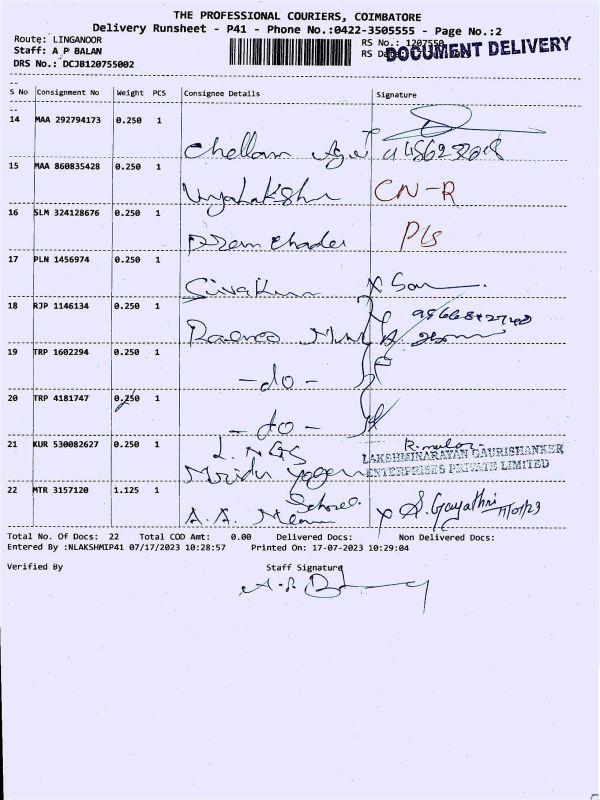 THE PROFESSIONAL COURIERS, COIMBATORE
Delivery Runsheet - P41 - Phone No.:0422-3505555 - Page No.:2
Route: LINGANOOR
RS No.: 1207550
Staff: A P BALAN
RS
DOCUMENT DELIVERY
DRS No.: DCJB120755002
S No Consignment No Weight PCS Consignee Details Signature
14 MAA 292794173 0.250 1 Chellam
15 MAA 860835428 0.250 1 CN-R
16 SLM 324128676 0.250 1 Pls
17 PLN 1456974 0.250 1 Sivakum x Son
18 RJP 1146134 0.250 1
19 TRP 1602294 0.250 1 -do-
20 TRP 4181747 0.250 1 -do-
21 KUR 530082627 0.250 1
LAKSHMINARAYAN GAURISHANKER
ENTERPRISES PRIVATE LIMITED
22 MTR 3157120 1.125 1 A.A. School x S.Gayathri
Total No. Of Docs: 22 Total COD Amt: 0.00 Delivered Docs: Non Delivered Docs:
Entered By :NLAKSHMIP41 07/17/2023 10:28:57 Printed On: 17-07-2023 10:29:04
Verified By Staff Signature